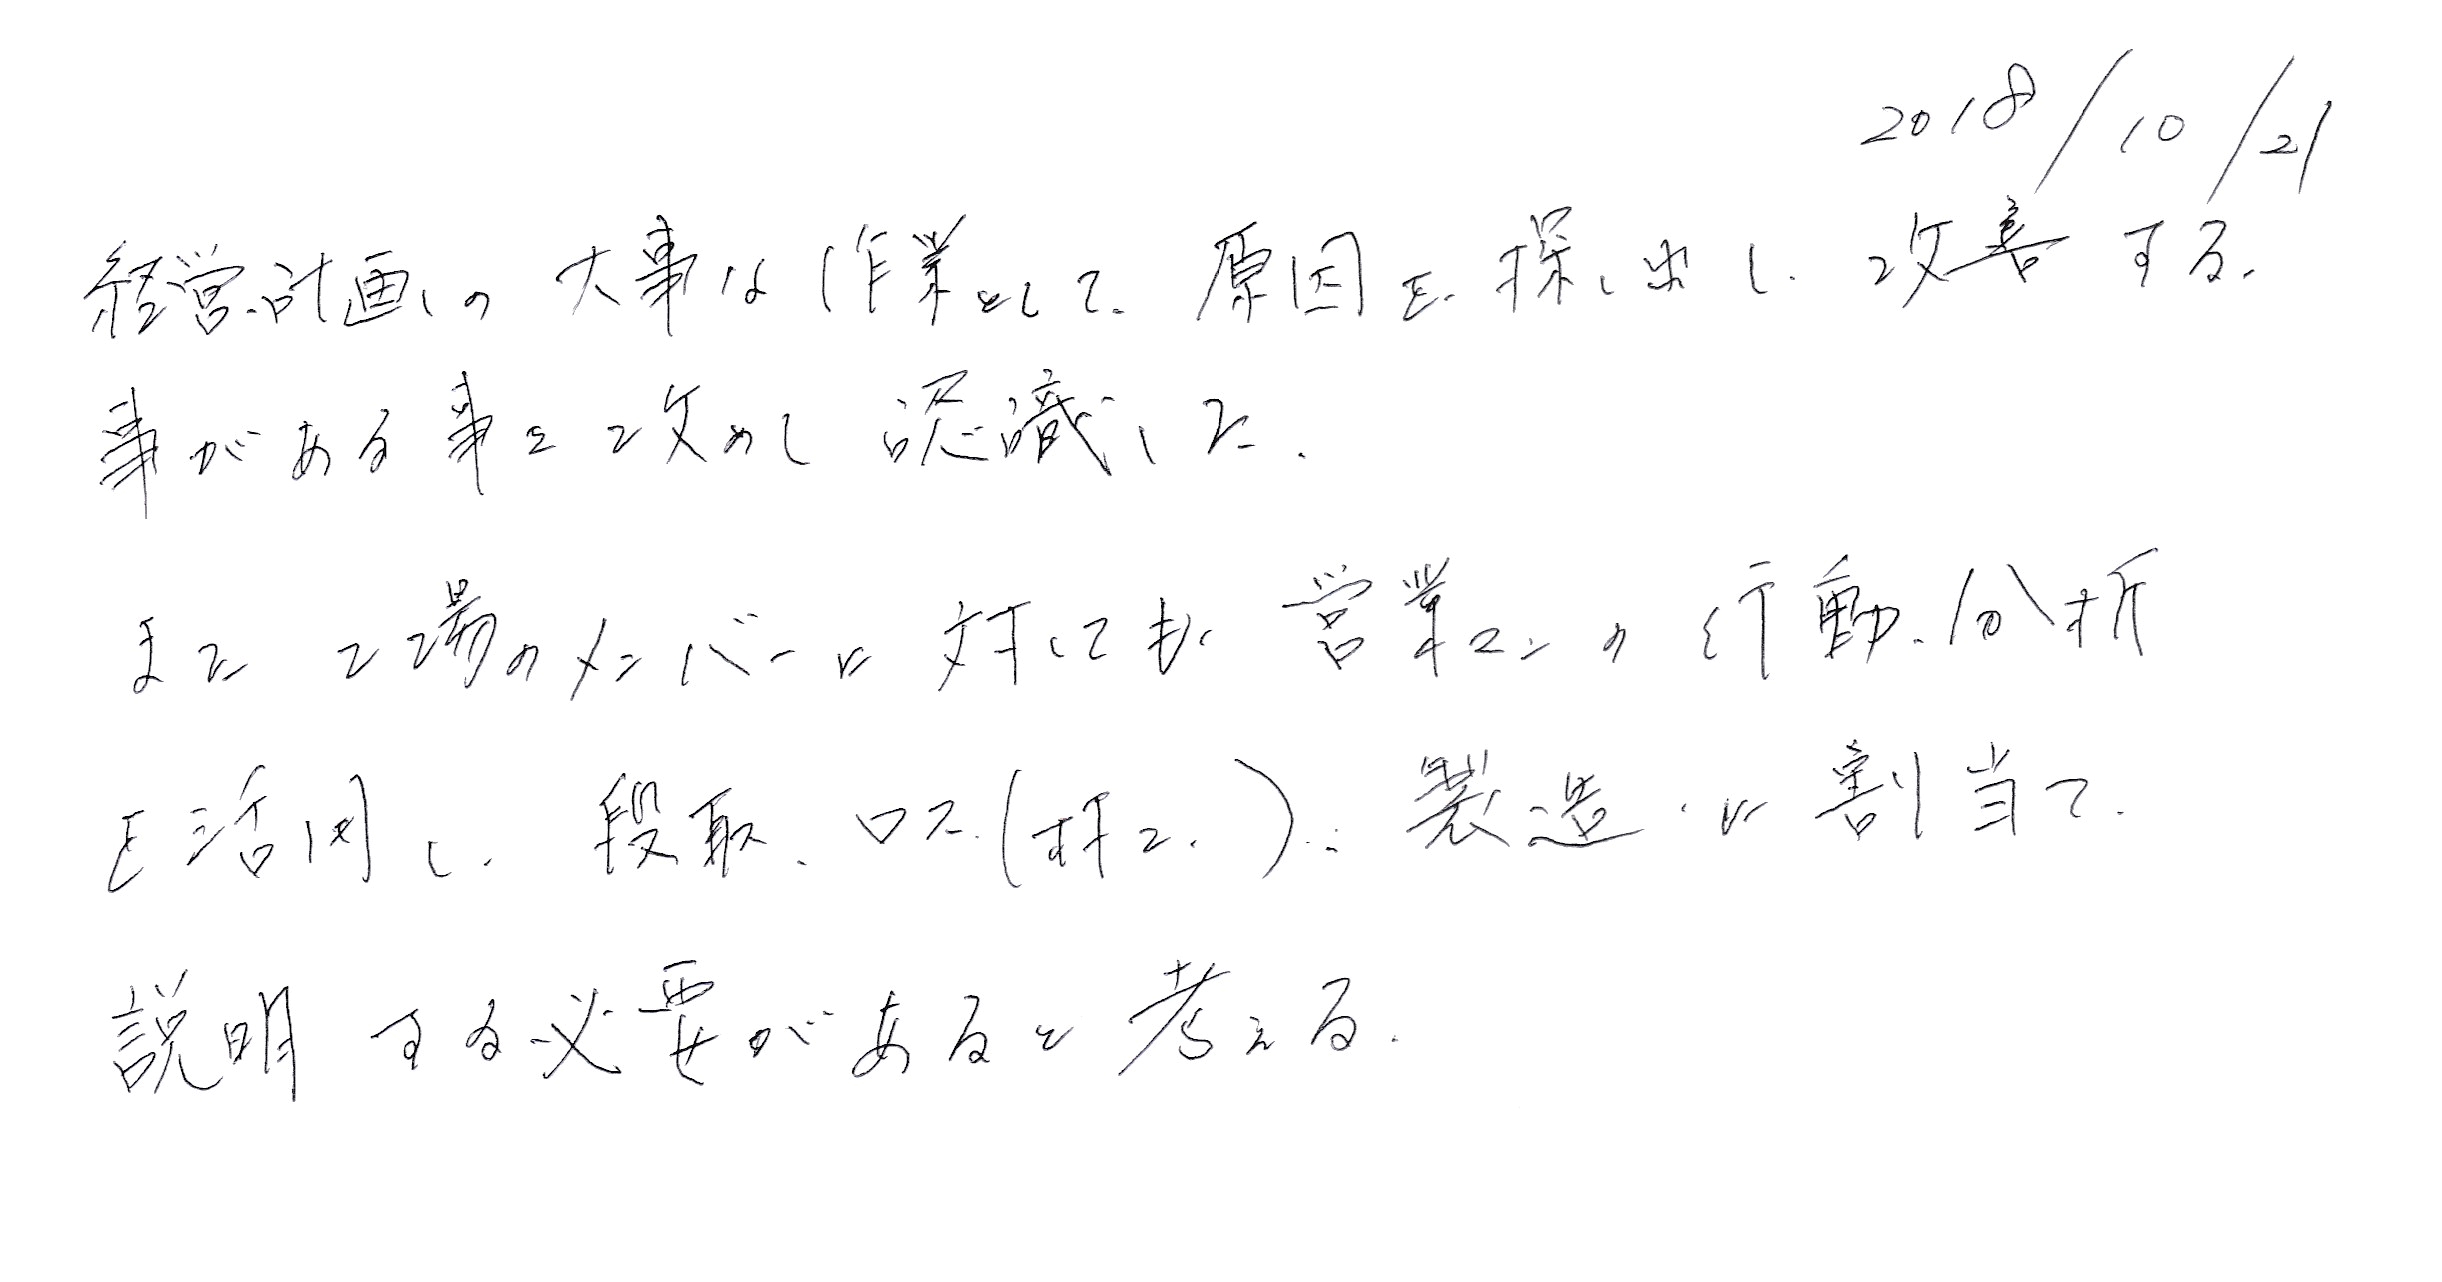 2018/10/21
経営計画の大事な作業として、原因を探し出し、改善する。
事がある事を改めし認識した。
また工場のメンバーに対しても、営業マンの行動、分析
を活用し、段取、ロス(
)、製造、に割当て、
説明する必要があると考える。